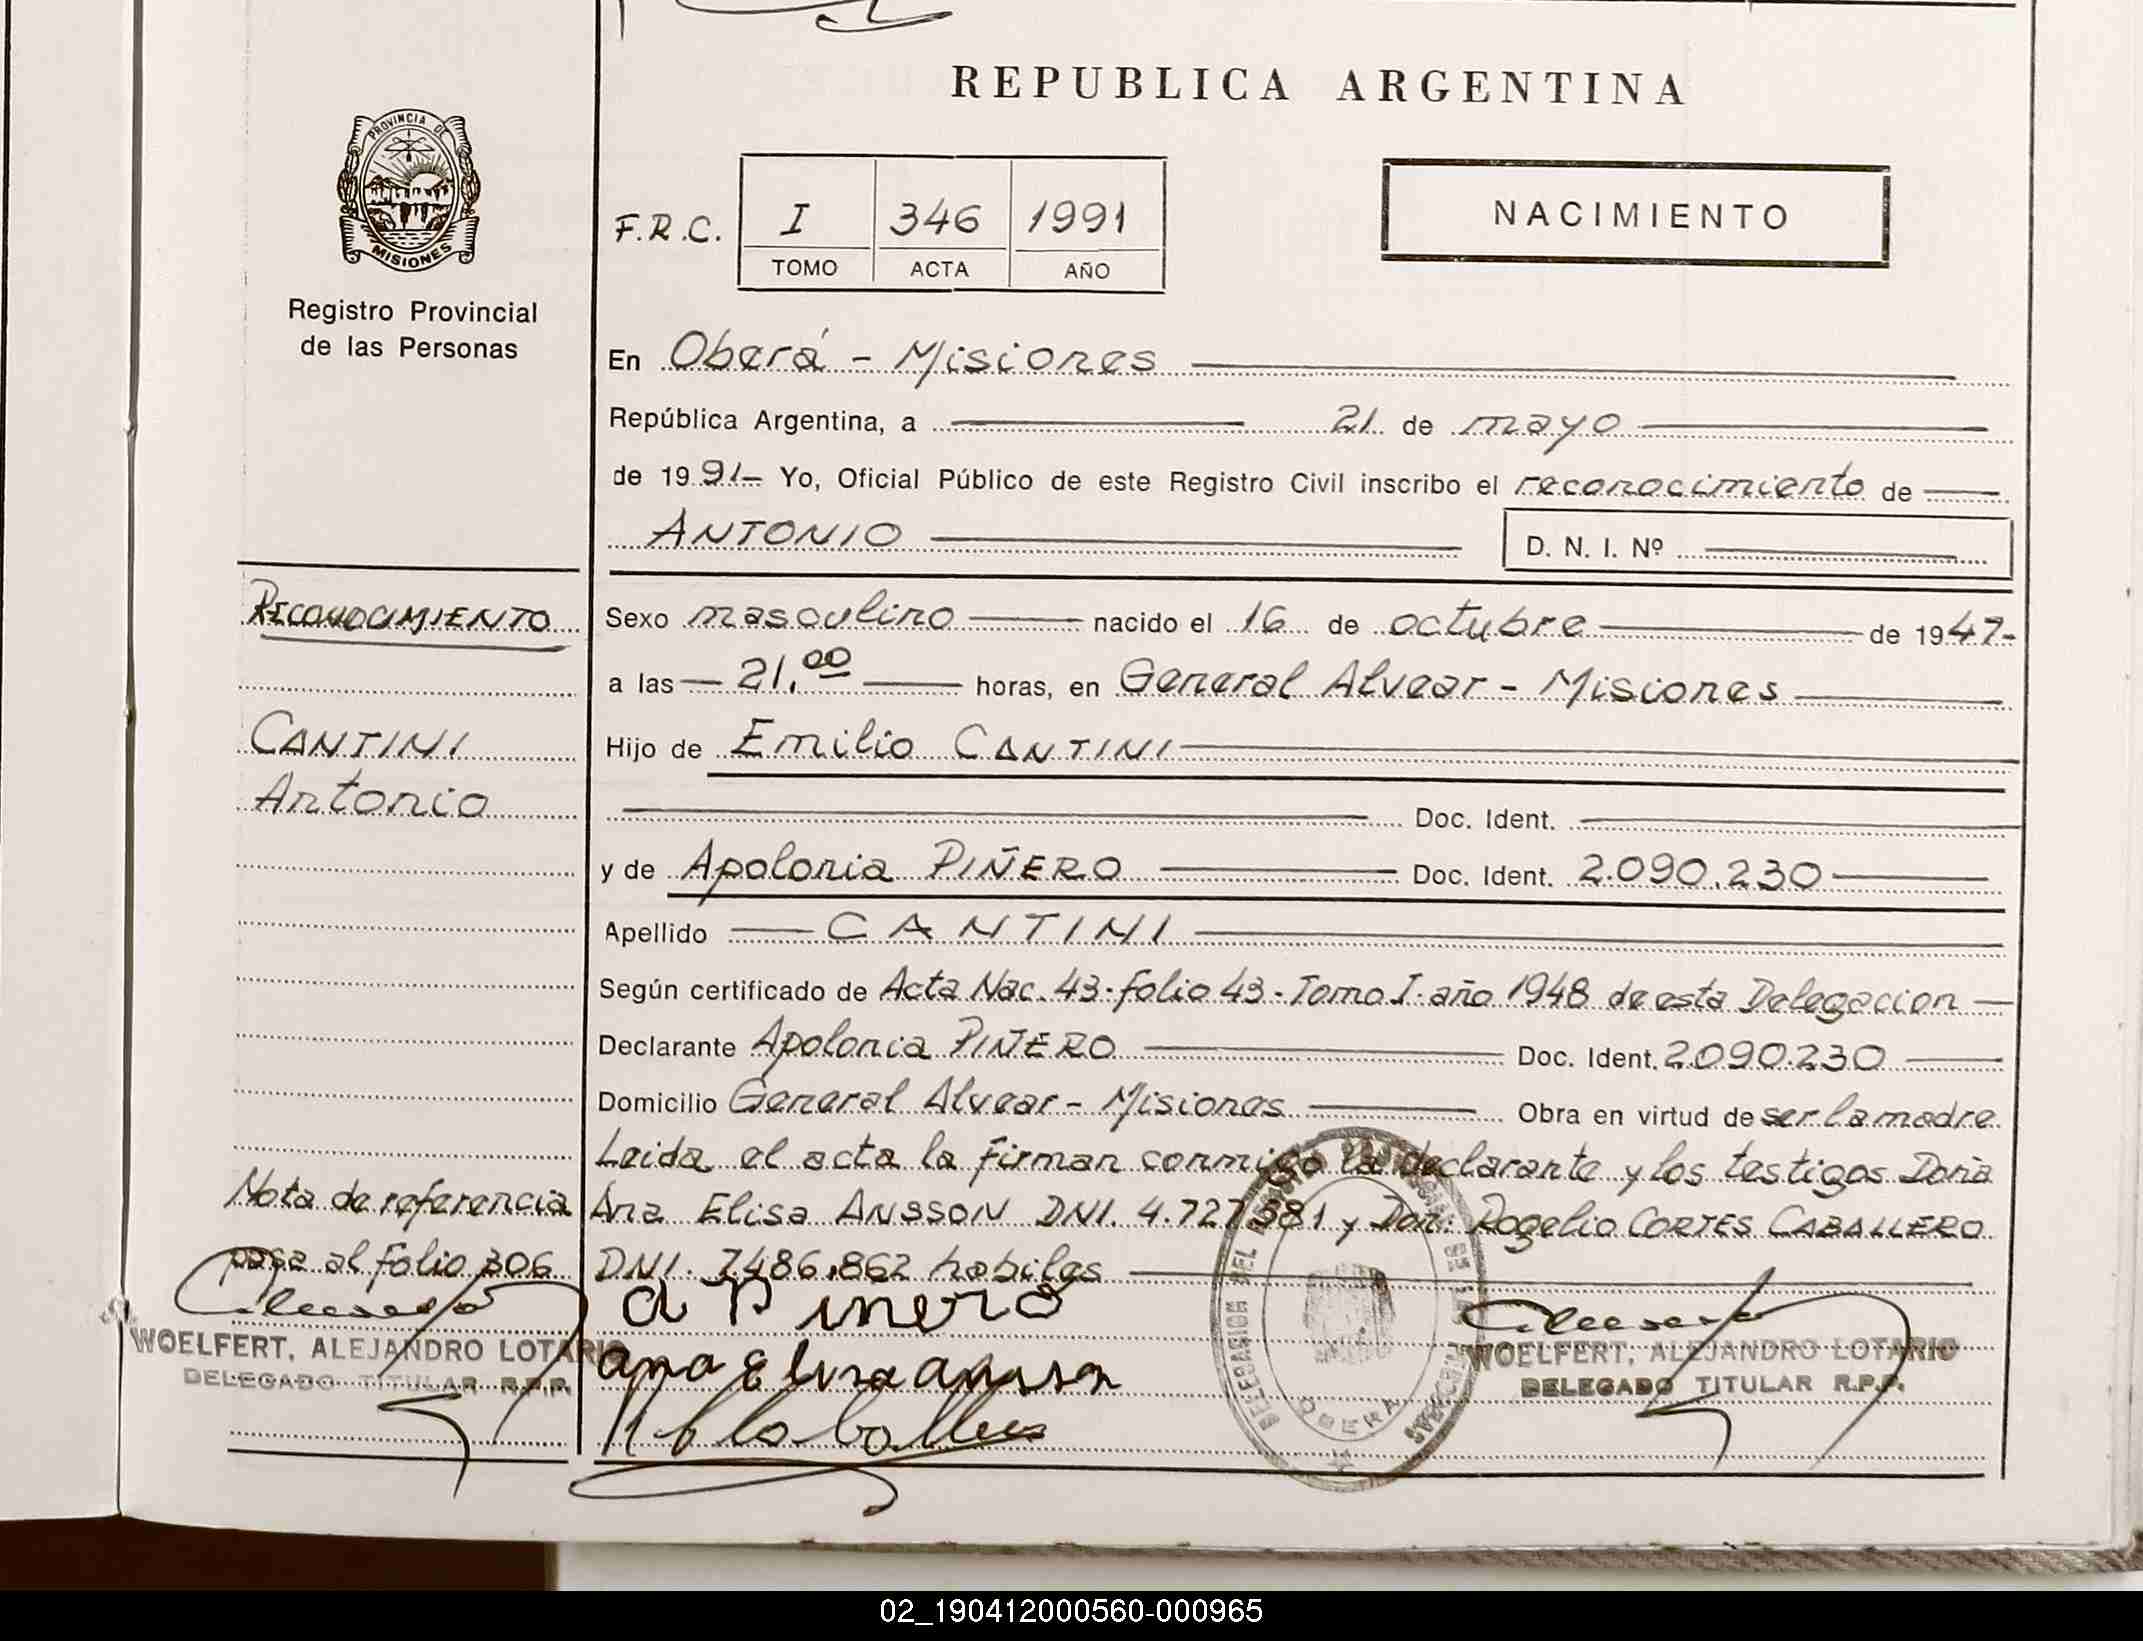 REPUBLICA ARGENTINA
PROVINCIA DE
MISIONES
Registro Provincial
de las Personas
F.R.C. I 346 1991
TOMO ACTA AÑO
NACIMIENTO
En Oberá - Misiones
República Argentina, a 21 de mayo
de 1991- Yo, Oficial Público de este Registro Civil inscribo el reconocimiento de
ANTONIO D. N. I. Nº
RECONOCIMIENTO
CANTINI
Antonio
Sexo masculino nacido el 16 de octubre de 1947-
a las 21,00 horas, en General Alvear - Misiones
Hijo de Emilio CANTINI
Doc. Ident.
y de Apolonia PIÑERO Doc. Ident. 2.090.230
Apellido CANTINI
Según certificado de Acta Nac. 43-folio 43-Tomo I-año 1948 de esta Delegacion
Declarante Apolonia PIÑERO Doc. Ident. 2.090.230
Domicilio General Alvear - Misiones Obra en virtud de ser la madre
Leida el acta la firman conmigo la declarante y los testigos Doña
Ana Elisa ANSSON DNI. 4.727.381 y Don: Rogelio CORTES CABALLERO
DNI. 7.486.862 habiles
Nota de referencia
pasa al folio 306
a Pinero
ana Elisa ansson
WOELFERT, ALEJANDRO LOTARIO
DELEGADO TITULAR R.P.P.
WOELFERT, ALEJANDRO LOTARIO
DELEGADO TITULAR R.P.P.
DELEGACION DEL
OBERA
02_190412000560-000965